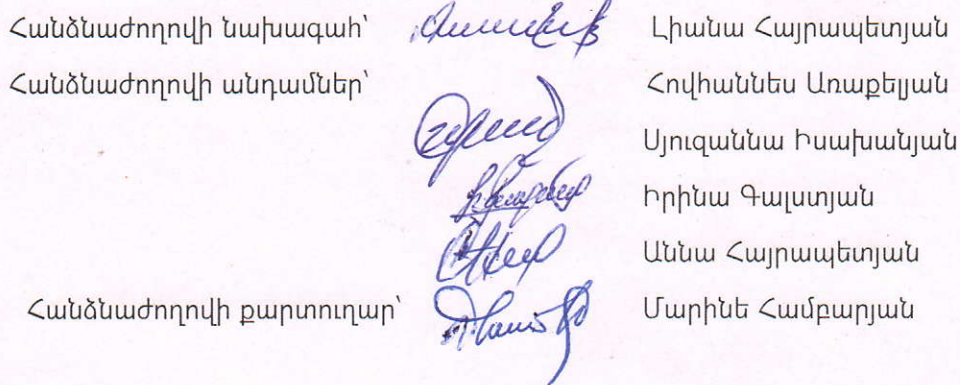 Հանձնաժողովի նախագահ՝ Լիանա Հայրապետյան
Հանձնաժողովի անդամներ՝ Հովհաննես Առաքելյան
Սյուզաննա Իսախանյան
Իրինա Գալստյան
Աննա Հայրապետյան
Հանձնաժողովի քարտուղար՝ Մարինե Համբարյան